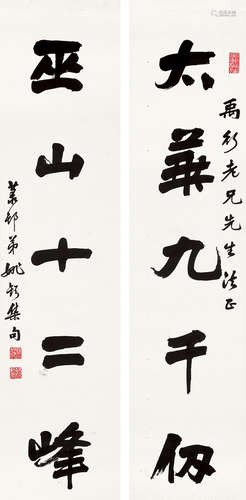 太華九千仞
禹行老兄先生法正
巫山十二峰
弟姚
集句